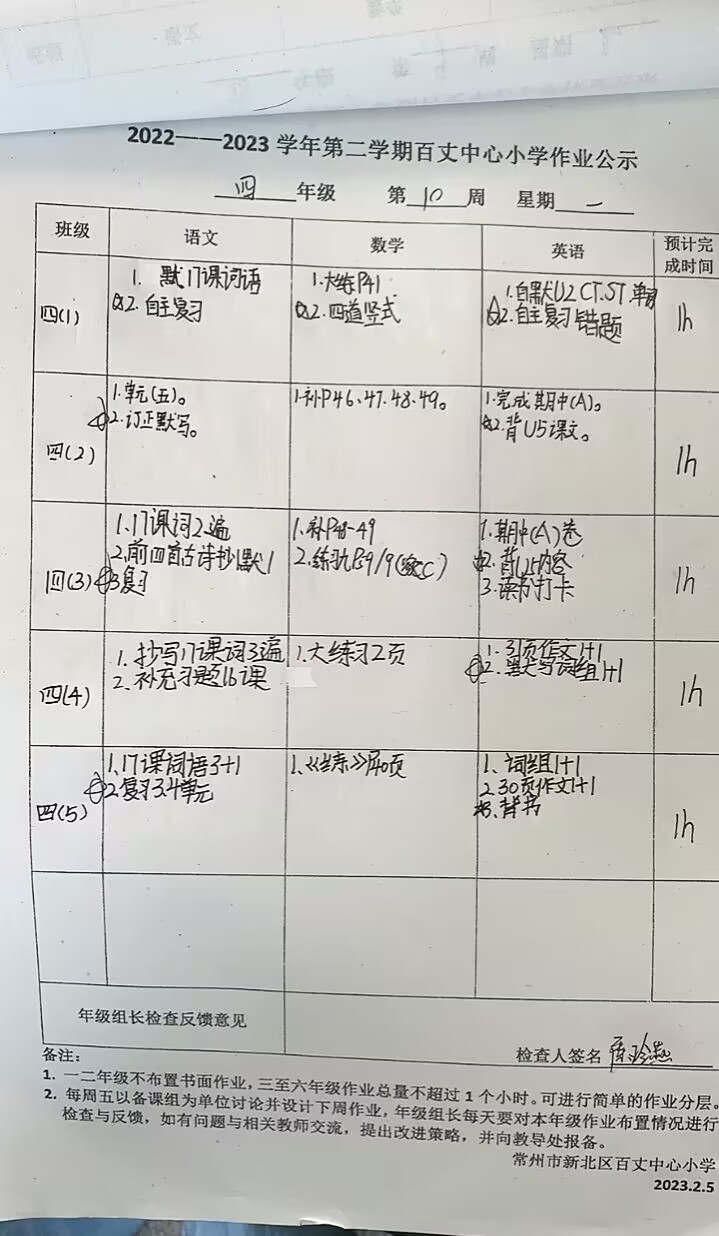 2022——2023 学年第二学期百丈中心小学作业公示
四 年级 第 10 周 星期 一
班级 语文 数学 英语 预计完成时间
四(1)
1. 默17课词语
2. 自主复习
1.大练P41
2. 四道竖式
1.自默U2 CT.ST.单词
2.自主复习错题
1h
四(2)
1.单元(五)。
2.订正默写。
1.补P46、47、48、49。
1.完成期中(A)。
2.背U5课文。
1h
四(3)
1.17课词2遍
2.前四首古诗抄1默1
3复习
1.补P48-49
2.练习九P59/9
1.期中(A)卷
2.背U5内容
3.读书打卡
1h
四(4)
1.抄写17课词3遍
2.补充习题16课
1.大练习2页
1.31页作文1+1
2.默写词组1+1
1h
四(5)
1.17课词语3+1
2复习3.4单元
1.《练》P40页
1、词组1+1
2.30页作文1+1
3、背书
1h
年级组长检查反馈意见
检查人签名
备注:
1. 一二年级不布置书面作业，三至六年级作业总量不超过 1 个小时。可进行简单的作业分层。
2. 每周五以备课组为单位讨论并设计下周作业，年级组长每天要对本年级作业布置情况进行
检查与反馈，如有问题与相关教师交流，提出改进策略，并向教导处报备。
常州市新北区百丈中心小学
2023.2.5